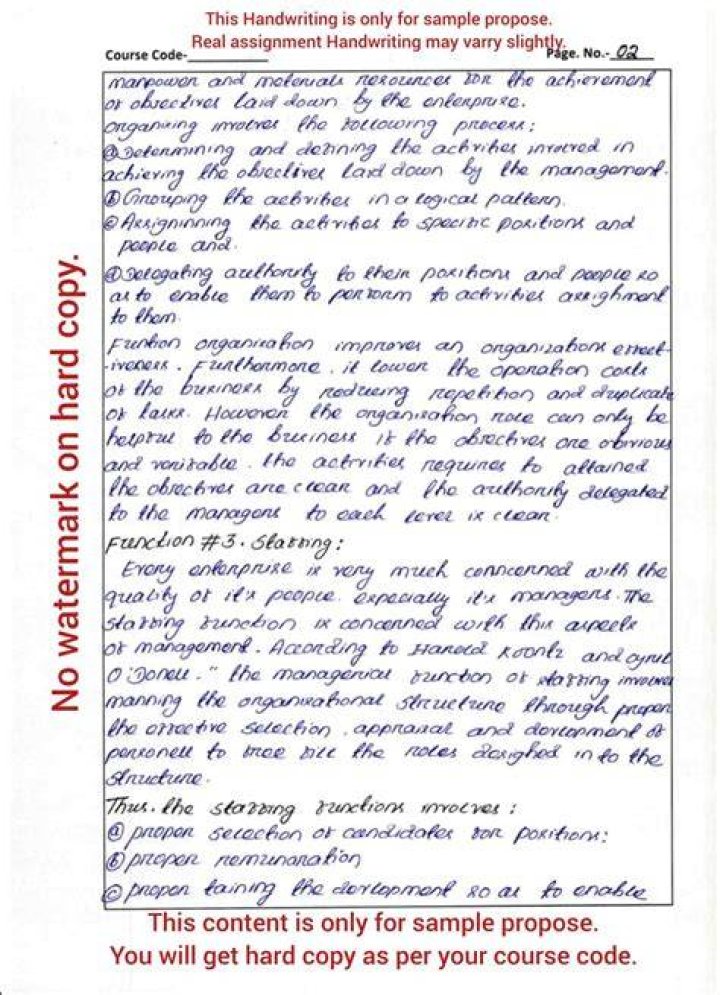 This Handwriting is only for sample propose.
Real assignment Handwriting may varry slightly.
Course Code-
Page. No.- 02
manpower and materials resources for the achievement
of objectives laid down by the enterprise.
organising involves the following process:
ⓐ Determining and defining the activities involved in
achieving the objectives laid down by the management.
ⓑ Grouping the activities in a logical pattern.
ⓒ Assignninng the activities to specific positions and
people and.
ⓓ Delegating authority to their positions and people so
as to enable them to perform to activities assighment
to them.
Funtion organisation improves an organizations effect-
-iveness. Furthermore, it lower the operation costs
of the business by reducing repetition and duplicate
of tasks. However the organisation role can only be
helpful to the business if the objectives are obvious
and verifable. the activities requires to attained
the objectives are clear and the authority delegated
to the managers to each level is clear.
Function #3. Staffing:
Every enterprise is very much conncerned with the
quality of it's people. especially its managers. The
staffing function is concerned with this aspects
of management. According to Harold Koontz and cyril
O'Donell. "the managerial function of staffing involves
manning the organisational structure through proper
the effective selection, appraisal and devlopment of
personell to free fill the roles desighed in to the
structure.
Thus. the staffing functions involves:
ⓐ proper selection of candidates for positions:
ⓑ proper remunaration
ⓒ propen taining the devlopment so as to enable
No watermark on hard copy.
This content is only for sample propose.
You will get hard copy as per your course code.